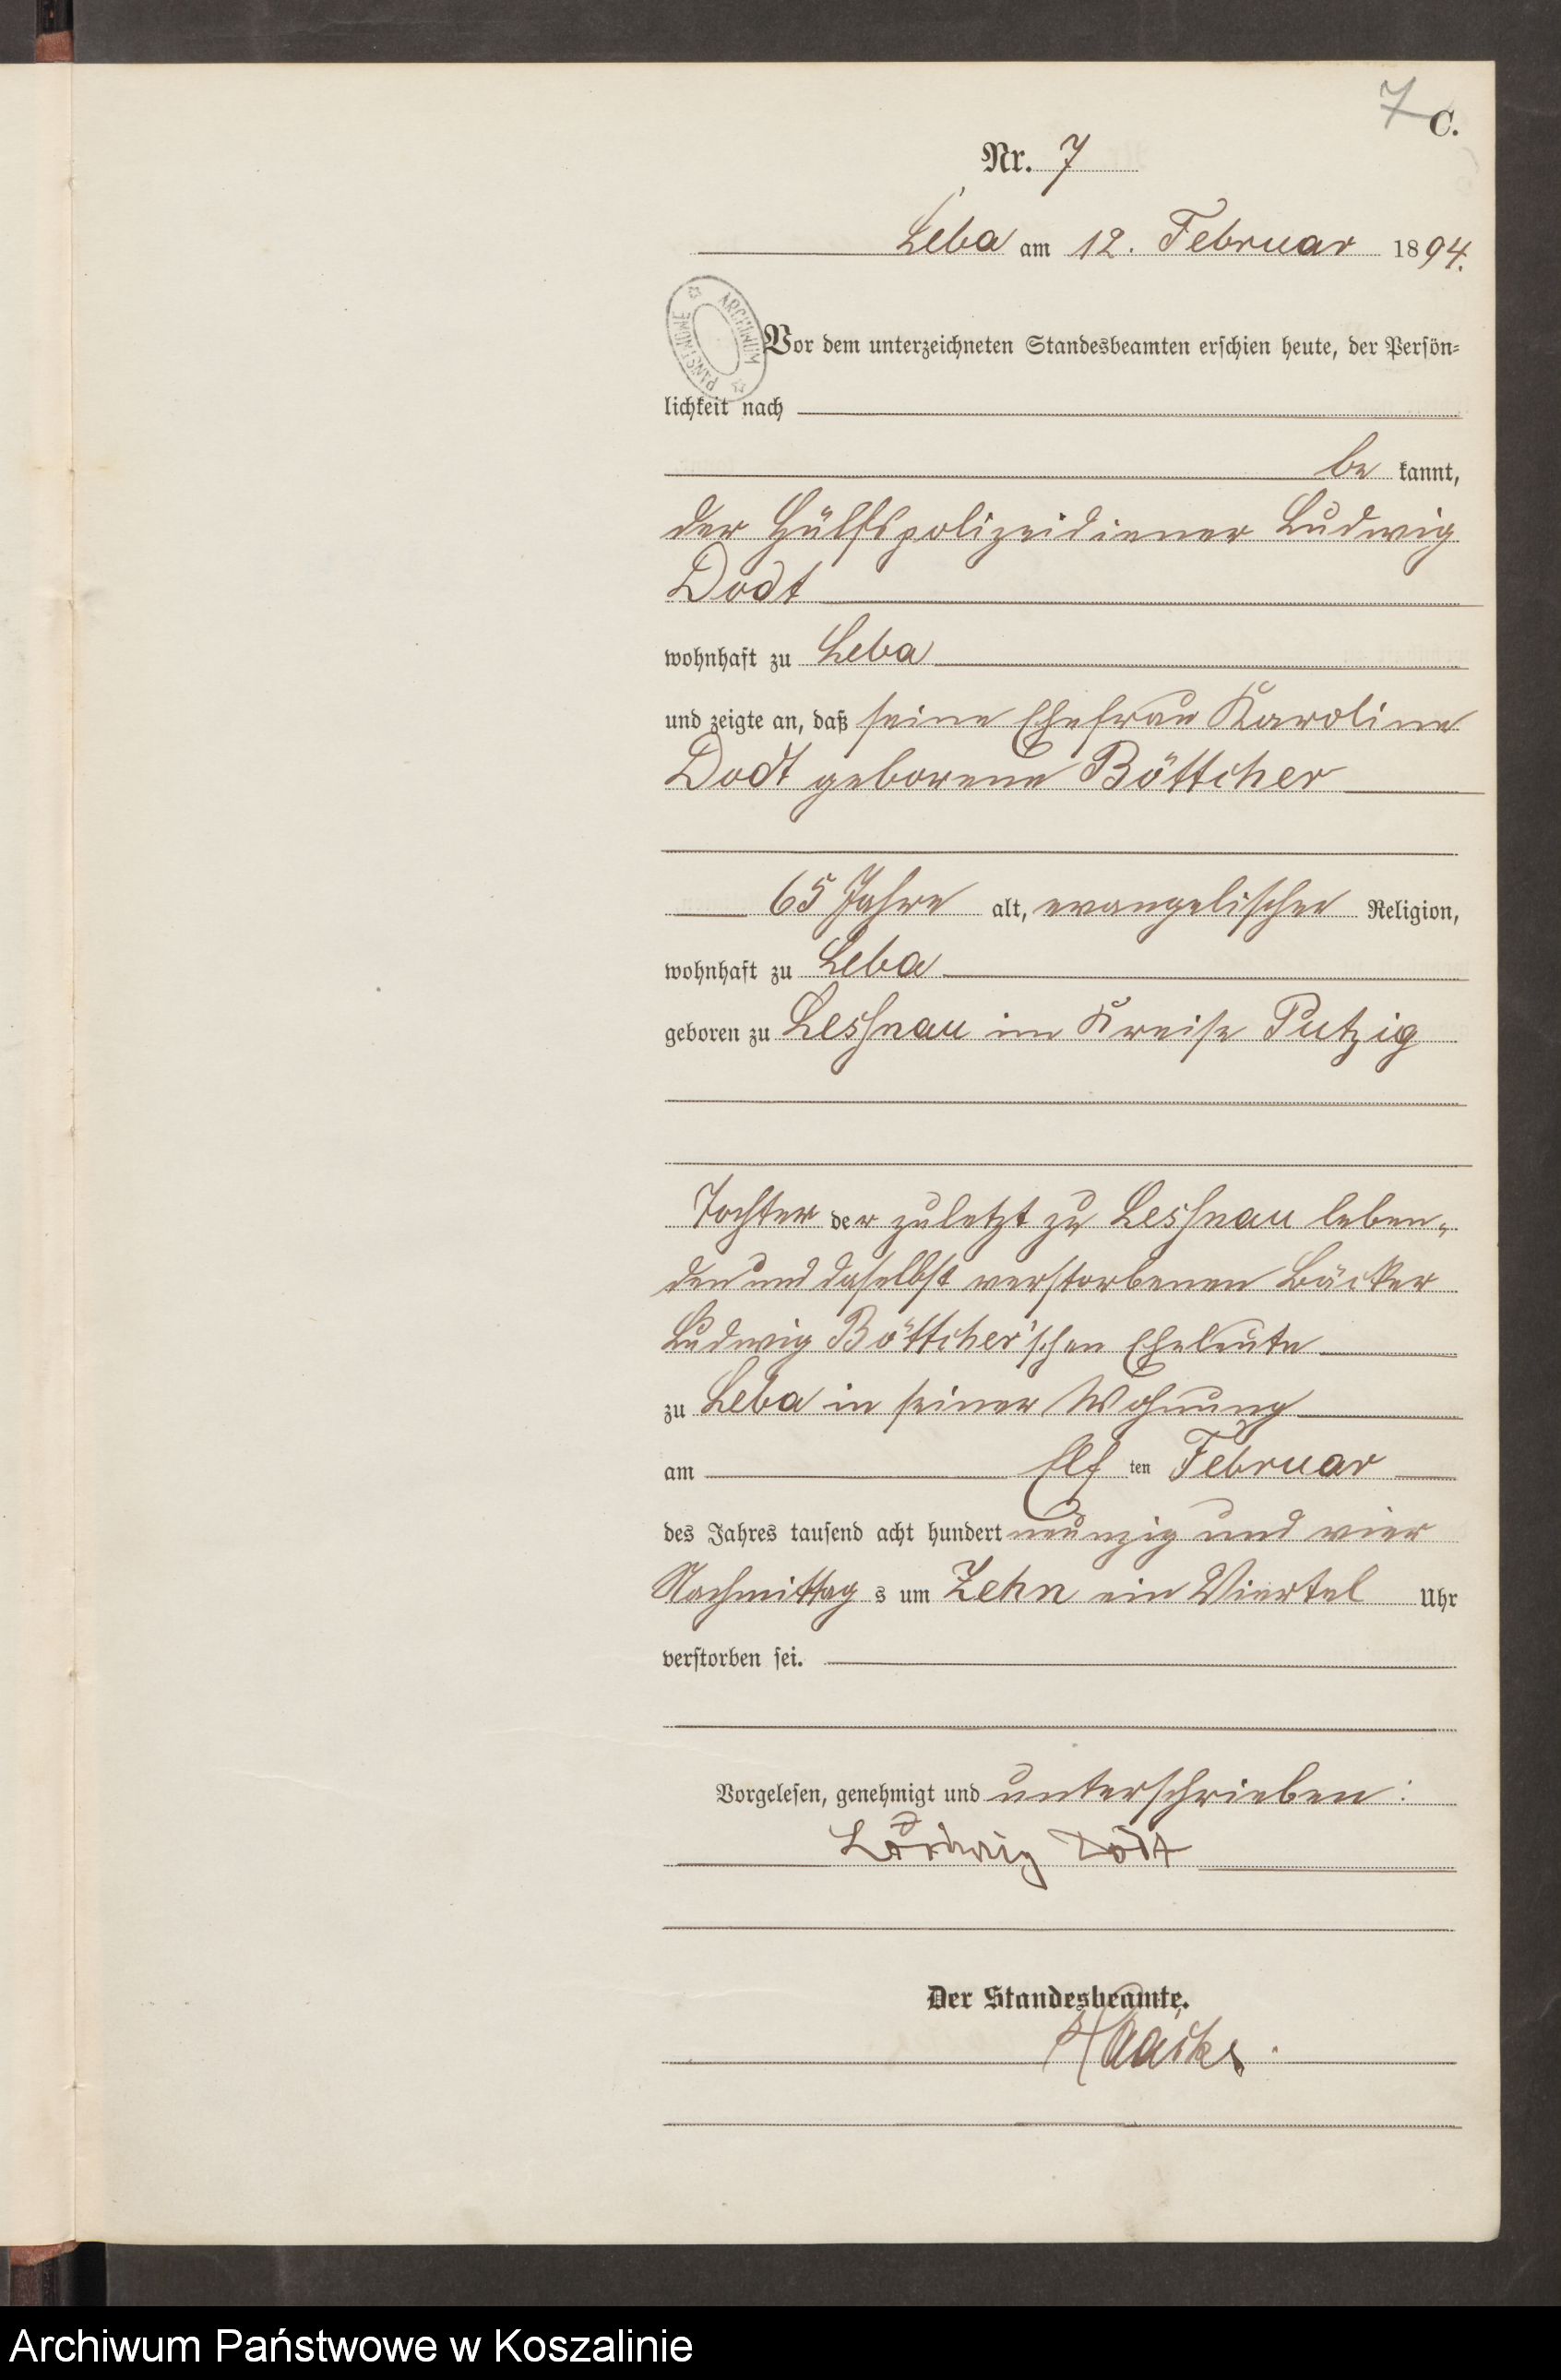 7 C.
Nr. 7
Leba am 12. Februar 1894.
ARCHIWUM PAŃSTWOWE
Vor dem unterzeichneten Standesbeamten erschien heute, der Persön=
lichkeit nach
be kannt,
der Hülfspolizeidiener Ludwig
Dodt
wohnhaft zu Leba
und zeigte an, daß seine Ehefrau Karoline
Dodt geborene Böttcher
65 Jahre alt, evangelischer Religion,
wohnhaft zu Leba
geboren zu Lessnau im Kreise Putzig
Tochter der zuletzt zu Lessnau leben„
den und daselbst verstorbenen Bäcker
Ludwig Böttcher'schen Eheleute
zu Leba in seiner Wohnung
am Elf ten Februar
des Jahres tausend acht hundert neunzig und vier
Nachmittag s um Zehn ein Viertel Uhr
verstorben sei.
Vorgelesen, genehmigt und unterschrieben:
Ludwig Dodt
Der Standesbeamte.
Archiwum Państwowe w Koszalinie